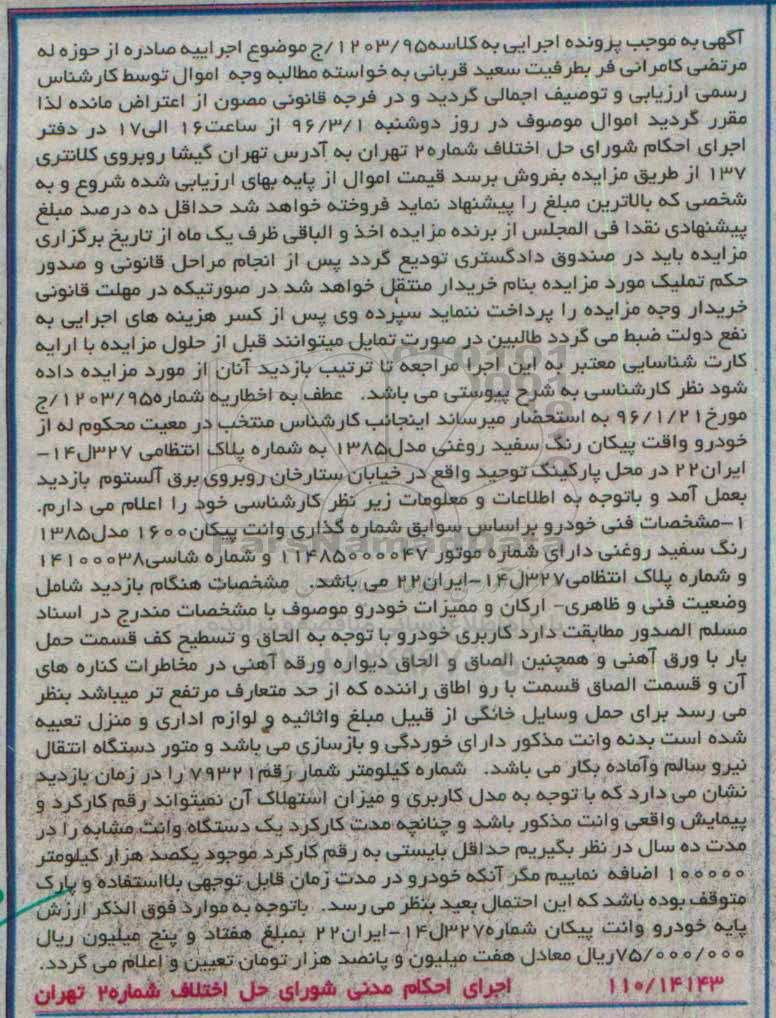 آگهی به موجب پرونده اجرایی به کلاسه۱۲۰۳/۹۵/ج موضوع اجراییه صادره از حوزه له
مرتضی کامرانی فر بطرفیت سعید قربانی به خواسته مطالبه وجه اموال توسط کارشناس
رسمی ارزیابی و توصیف اجمالی گردید و در فرجه قانونی مصون از اعتراض مانده لذا
مقرر گردید اموال موصوف در روز دوشنبه ۹۶/۳/۱ از ساعت۱۶ الی۱۷ در دفتر
اجرای احکام شورای حل اختلاف شماره۲ تهران به آدرس تهران گیشا روبروی کلانتری
۱۳۷ از طریق مزایده بفروش برسد قیمت اموال از پایه بهای ارزیابی شده شروع و به
شخصی که بالاترین مبلغ را پیشنهاد نماید فروخته خواهد شد حداقل ده درصد مبلغ
پیشنهادی نقدا فی المجلس از برنده مزایده اخذ و الباقی ظرف یک ماه از تاریخ برگزاری
مزایده باید در صندوق دادگستری تودیع گردد پس از انجام مراحل قانونی و صدور
حکم تملیک مورد مزایده بنام خریدار منتقل خواهد شد در صورتیکه در مهلت قانونی
خریدار وجه مزایده را پرداخت ننماید سپرده وی پس از کسر هزینه های اجرایی به
نفع دولت ضبط می گردد طالبین در صورت تمایل میتوانند قبل از حلول مزایده با ارایه
کارت شناسایی معتبر به این اجرا مراجعه تا ترتیب بازدید آنان از مورد مزایده داده
شود نظر کارشناسی به شرح پیوستی می باشد. عطف به اخطاریه شماره۱۲۰۳/۹۵/ج
مورخ۹۶/۱/۲۱ به استحضار میرساند اینجانب کارشناس منتخب در معیت محکوم له از
خودرو واقت پیکان رنگ سفید روغنی مدل۱۳۸۵ به شماره پلاک انتظامی ۳۲۷ل۱۴-
ایران۲۲ در محل پارکینگ توحید واقع در خیابان ستارخان روبروی برق آلستوم بازدید
بعمل آمد و باتوجه به اطلاعات و معلومات زیر نظر کارشناسی خود را اعلام می دارم.
۱-مشخصات فنی خودرو براساس سوابق شماره گذاری وانت پیکان۱۶۰۰ مدل۱۳۸۵
رنگ سفید روغنی دارای شماره موتور ۱۱۴۸۵۰۰۰۰۴۷ و شماره شاسی۱۴۱۰۰۰۳۸
و شماره پلاک انتظامی۳۲۷ل۱۴-ایران۲۲ می باشد. مشخصات هنگام بازدید شامل
وضعیت فنی و ظاهری- ارکان و ممیزات خودرو موصوف با مشخصات مندرج در اسناد
مسلم الصدور مطابقت دارد کاربری خودرو با توجه به الحاق و تسطیح کف قسمت حمل
بار با ورق آهنی و همچنین الصاق و الحاق دیواره ورقه آهنی در مخاطرات کناره های
آن و قسمت الصاق قسمت با رو اطاق راننده که از حد متعارف مرتفع تر میباشد بنظر
می رسد برای حمل وسایل خانگی از قبیل مبلغ واثاثیه و لوازم اداری و منزل تعبیه
شده است بدنه وانت مذکور دارای خوردگی و بازسازی می باشد و متور دستگاه انتقال
نیرو سالم وآماده بکار می باشد. شماره کیلومتر شمار رقم۷۹۳۲۱ را در زمان بازدید
نشان می دارد که با توجه به مدل کاربری و میزان استهلاک آن نمیتواند رقم کارکرد و
پیمایش واقعی وانت مذکور باشد و چنانچه مدت کارکرد یک دستگاه وانت مشابه را در
مدت ده سال در نظر بگیریم حداقل بایستی به رقم کارکرد موجود یکصد هزار کیلومتر
۱۰۰۰۰۰ اضافه نماییم مگر آنکه خودرو در مدت زمان قابل توجهی بلااستفاده و پارک
متوقف بوده باشد که این احتمال بعید بنظر می رسد. باتوجه به موارد فوق الذکر ارزش
پایه خودرو وانت پیکان شماره۳۲۷ل۱۴-ایران۲۲ بمبلغ هفتاد و پنج میلیون ریال
۷۵/۰۰۰/۰۰۰ریال معادل هفت میلیون و پانصد هزار تومان تعیین و اعلام می گردد.
۱۱۰/۱۴۱۴۳ اجرای احکام مدنی شورای حل اختلاف شماره۲ تهران